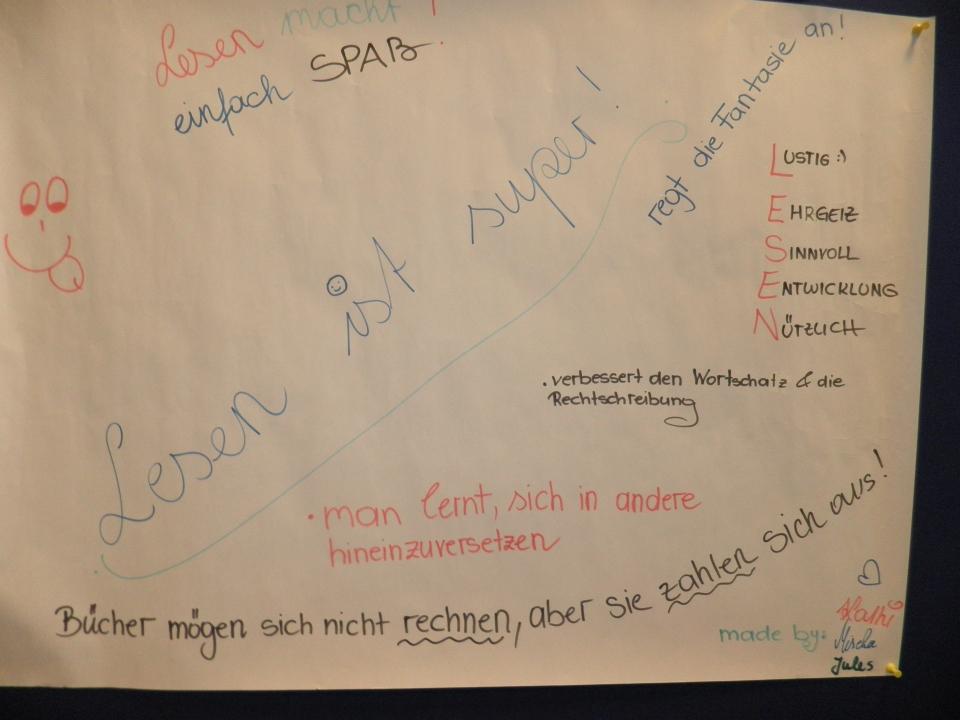 Lesen macht !
einfach SPAß.
regt die Fantasie an!
Lesen ist super!
LUSTIG :)
EHRGEIZ
SINNVOLL
ENTWICKLUNG
NÜTZLICH
. verbessert den Wortschatz & die
Rechtschreibung
· man lernt, sich in andere
hineinzuversetzen
Bücher mögen sich nicht rechnen, aber sie zahlen sich aus!
made by: Kathi
Jules